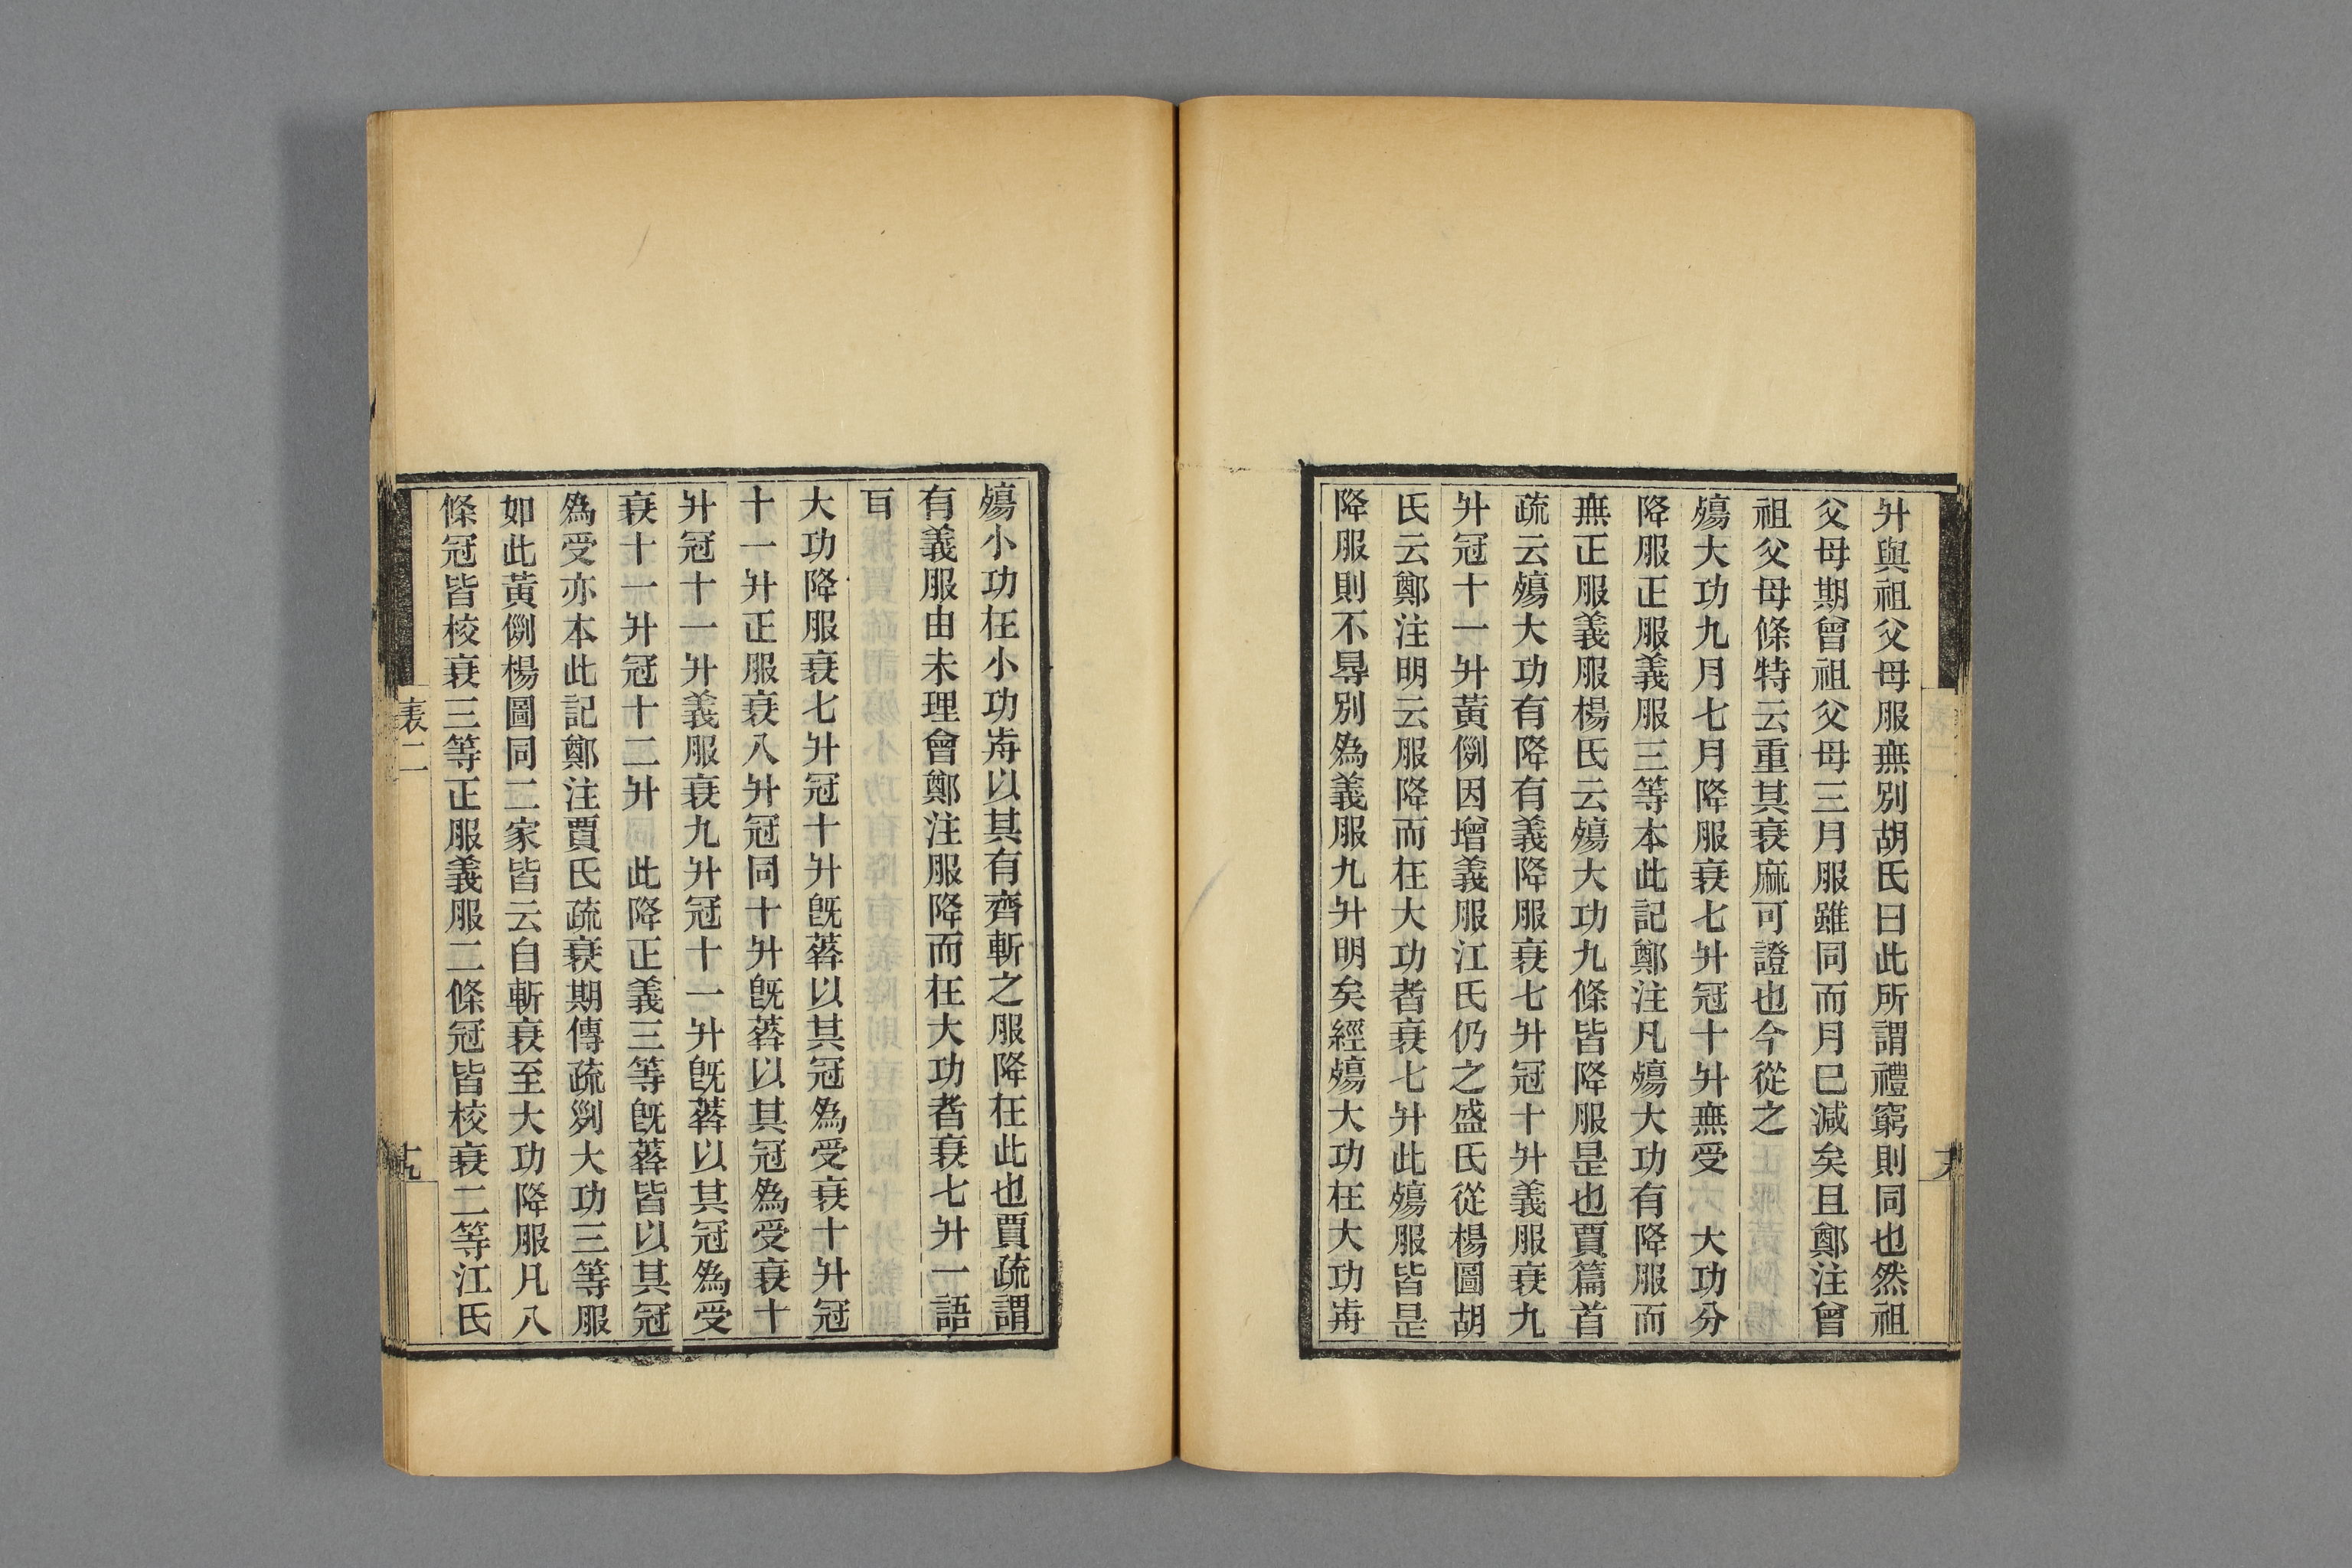 升與祖父母服無別胡氏曰此所謂禮窮則同也然祖
父母期曾祖父母三月服雖同而月已減矣且鄭注曾
祖父母條特云重其衰麻可證也今從之
殤大功九月七月降服衰七升冠十升無受　大功分
降服正服義服三等本此記鄭注凡殤大功有降服而
無正服義服楊氏云殤大功九條皆降服是也賈篇首
疏云殤大功有降有義降服衰七升冠十升義服衰九
升冠十一升黃㓡因增義服江氏仍之盛氏從楊圖胡
氏云鄭注明云服降而在大功者衰七升此殤服皆是
降服則不㝵別為義服九升明矣經殤大功在大功歬
殤小功在小功歬以其有齊斬之服降在此也賈疏謂
有義服由未理會鄭注服降而在大功者衰七升一語
𦣻
大功降服衰七升冠十升旣葬以其冠為受衰十升冠
十一升正服衰八升冠同十升旣葬以其冠為受衰十
升冠十一升義服衰九升冠十一升旣葬以其冠為受
衰十一升冠十二升　此降正義三等旣葬皆以其冠
為受亦本此記鄭注賈氏疏衰期傳疏列大功三等服
如此黃例楊圖同二家皆云自斬衰至大功降服凡八
條冠皆校衰三等正服義服二條冠皆校衰二等江氏
表二
十九